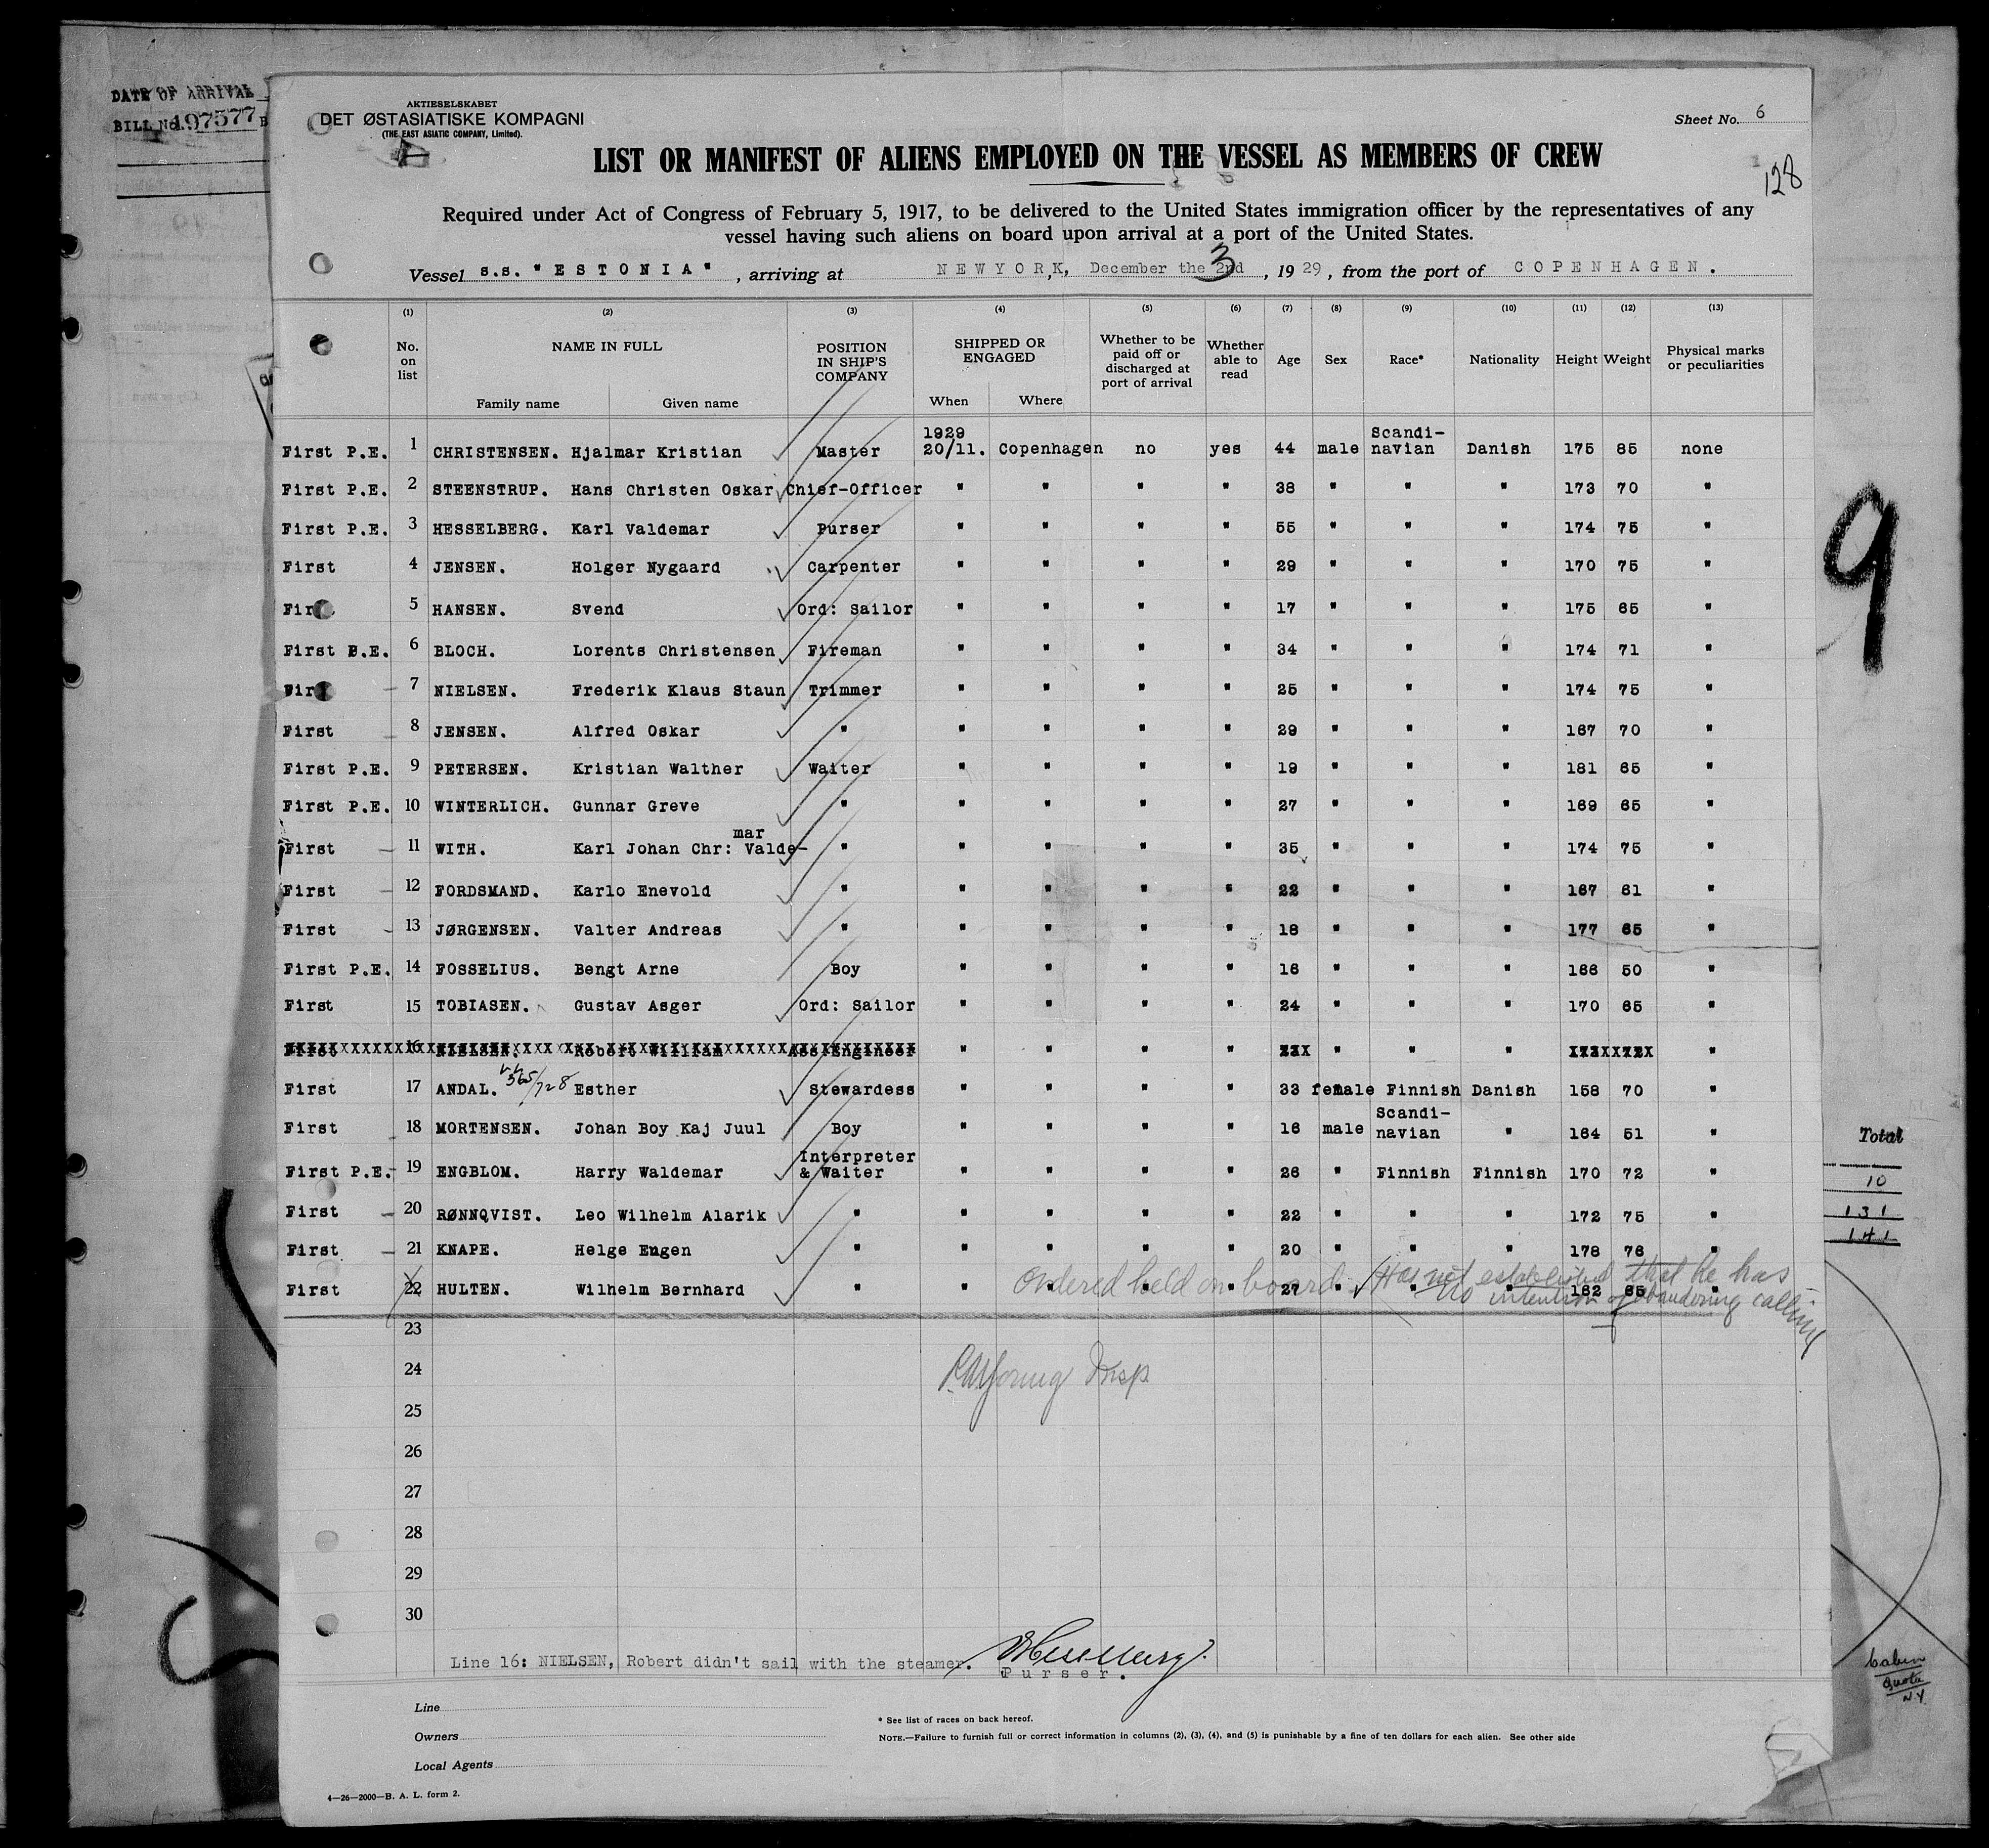 DATE OF ARRIVAL
BILL No. 197577 B
AKTIESELSKABET
DET ØSTASIATISKE KOMPAGNI
(THE EAST ASIATIC COMPANY, Limited).
Sheet No. 6
LIST OR MANIFEST OF ALIENS EMPLOYED ON THE VESSEL AS MEMBERS OF CREW
128
Required under Act of Congress of February 5, 1917, to be delivered to the United States immigration officer by the representatives of any
vessel having such aliens on board upon arrival at a port of the United States.
Vessel s.s. "ESTONIA" , arriving at NEWYORK, December the 2nd 3 , 1929 , from the port of COPENHAGEN.
(1) (2) (3) (4) (5) (6) (7) (8) (9) (10) (11) (12) (13)
No. on list NAME IN FULL Family name Given name POSITION IN SHIP'S COMPANY SHIPPED OR ENGAGED When Where Whether to be paid off or discharged at port of arrival Whether able to read Age Sex Race* Nationality Height Weight Physical marks or peculiarities
First P.E. 1 CHRISTENSEN. Hjalmar Kristian Master 1929 20/11. Copenhagen no yes 44 male Scandi-navian Danish 175 85 none
First P.E. 2 STEENSTRUP. Hans Christen Oskar Chief-Officer " " " " 38 " " " 173 70 "
First P.E. 3 HESSELBERG. Karl Valdemar Purser " " " " 55 " " " 174 75 "
First 4 JENSEN. Holger Nygaard Carpenter " " " " 29 " " " 170 75 "
First 5 HANSEN. Svend Ord: Sailor " " " " 17 " " " 175 65 "
First P.E. 6 BLOCH. Lorents Christensen Fireman " " " " 34 " " " 174 71 "
First 7 NIELSEN. Frederik Klaus Staun Trimmer " " " " 25 " " " 174 75 "
First 8 JENSEN. Alfred Oskar " " " " " 29 " " " 167 70 "
First P.E. 9 PETERSEN. Kristian Walther Waiter " " " " 19 " " " 181 65 "
First P.E. 10 WINTERLICH. Gunnar Greve " " " " " 27 " " " 169 65 "
First 11 WITH. Karl Johan Chr: Valde-mar " " " " " 35 " " " 174 75 "
First 12 FORDSMAND. Karlo Enevold " " " " " 22 " " " 167 61 "
First 13 JØRGENSEN. Valter Andreas " " " " " 18 " " " 177 65 "
First P.E. 14 FOSSELIUS. Bengt Arne Boy " " " " 16 " " " 166 50 "
First 15 TOBIASEN. Gustav Asger Ord: Sailor " " " " 24 " " " 170 65 "
First 16 NIELSEN. Robert William Ass:Engineer " " " " " " " "
First 17 ANDAL. 365/728 Esther Stewardess " " " " 33 female Finnish Danish 158 70 "
First 18 MORTENSEN. Johan Boy Kaj Juul Boy " " " " 16 male Scandi-navian " 164 51 "
First P.E. 19 ENGBLOM. Harry Waldemar Interpreter & Waiter " " " " 26 " Finnish Finnish 170 72 "
First 20 RØNNQVIST. Leo Wilhelm Alarik " " " " " 22 " " " 172 75 "
First 21 KNAPE. Helge Eugen " " " " " 20 " " " 178 76 "
First 22 HULTEN. Wilhelm Bernhard " " " " " 27 " " " 162 65 "
Ordered held on board. Has not established that he has
no intention of abandoning calling
23
24
Young Insp
25
26
27
28
29
30
Line 16: NIELSEN, Robert didn't sail with the steamer.
Purser.
Line
Owners
Local Agents
* See list of races on back hereof.
NOTE.—Failure to furnish full or correct information in columns (2), (3), (4), and (5) is punishable by a fine of ten dollars for each alien. See other side
4—26—2000—B. A. L. form 2.
9
Total
10
131
141
Cabin
Quota
N.Y.